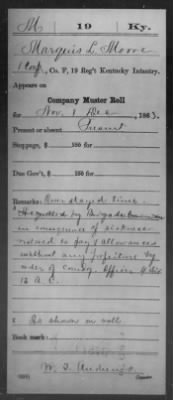 M | 19 | Ky.
Marquis L. Moore
1 Corp., Co. F, 19 Reg't Kentucky Infantry.
Appears on
Company Muster Roll
for Nov. & Dec, 1863.
Present or absent Present
Stoppage, $ 100 for
Due Gov't, $ 100 for
Remarks: Over stayed time
Acquitted by Brigade
in consequence of sickness
restored to pay & allowances
without any forfeiture by
order of Comdg. Officer
13 A. C.
So shown on roll
Book mark:
(358)
Copyist.